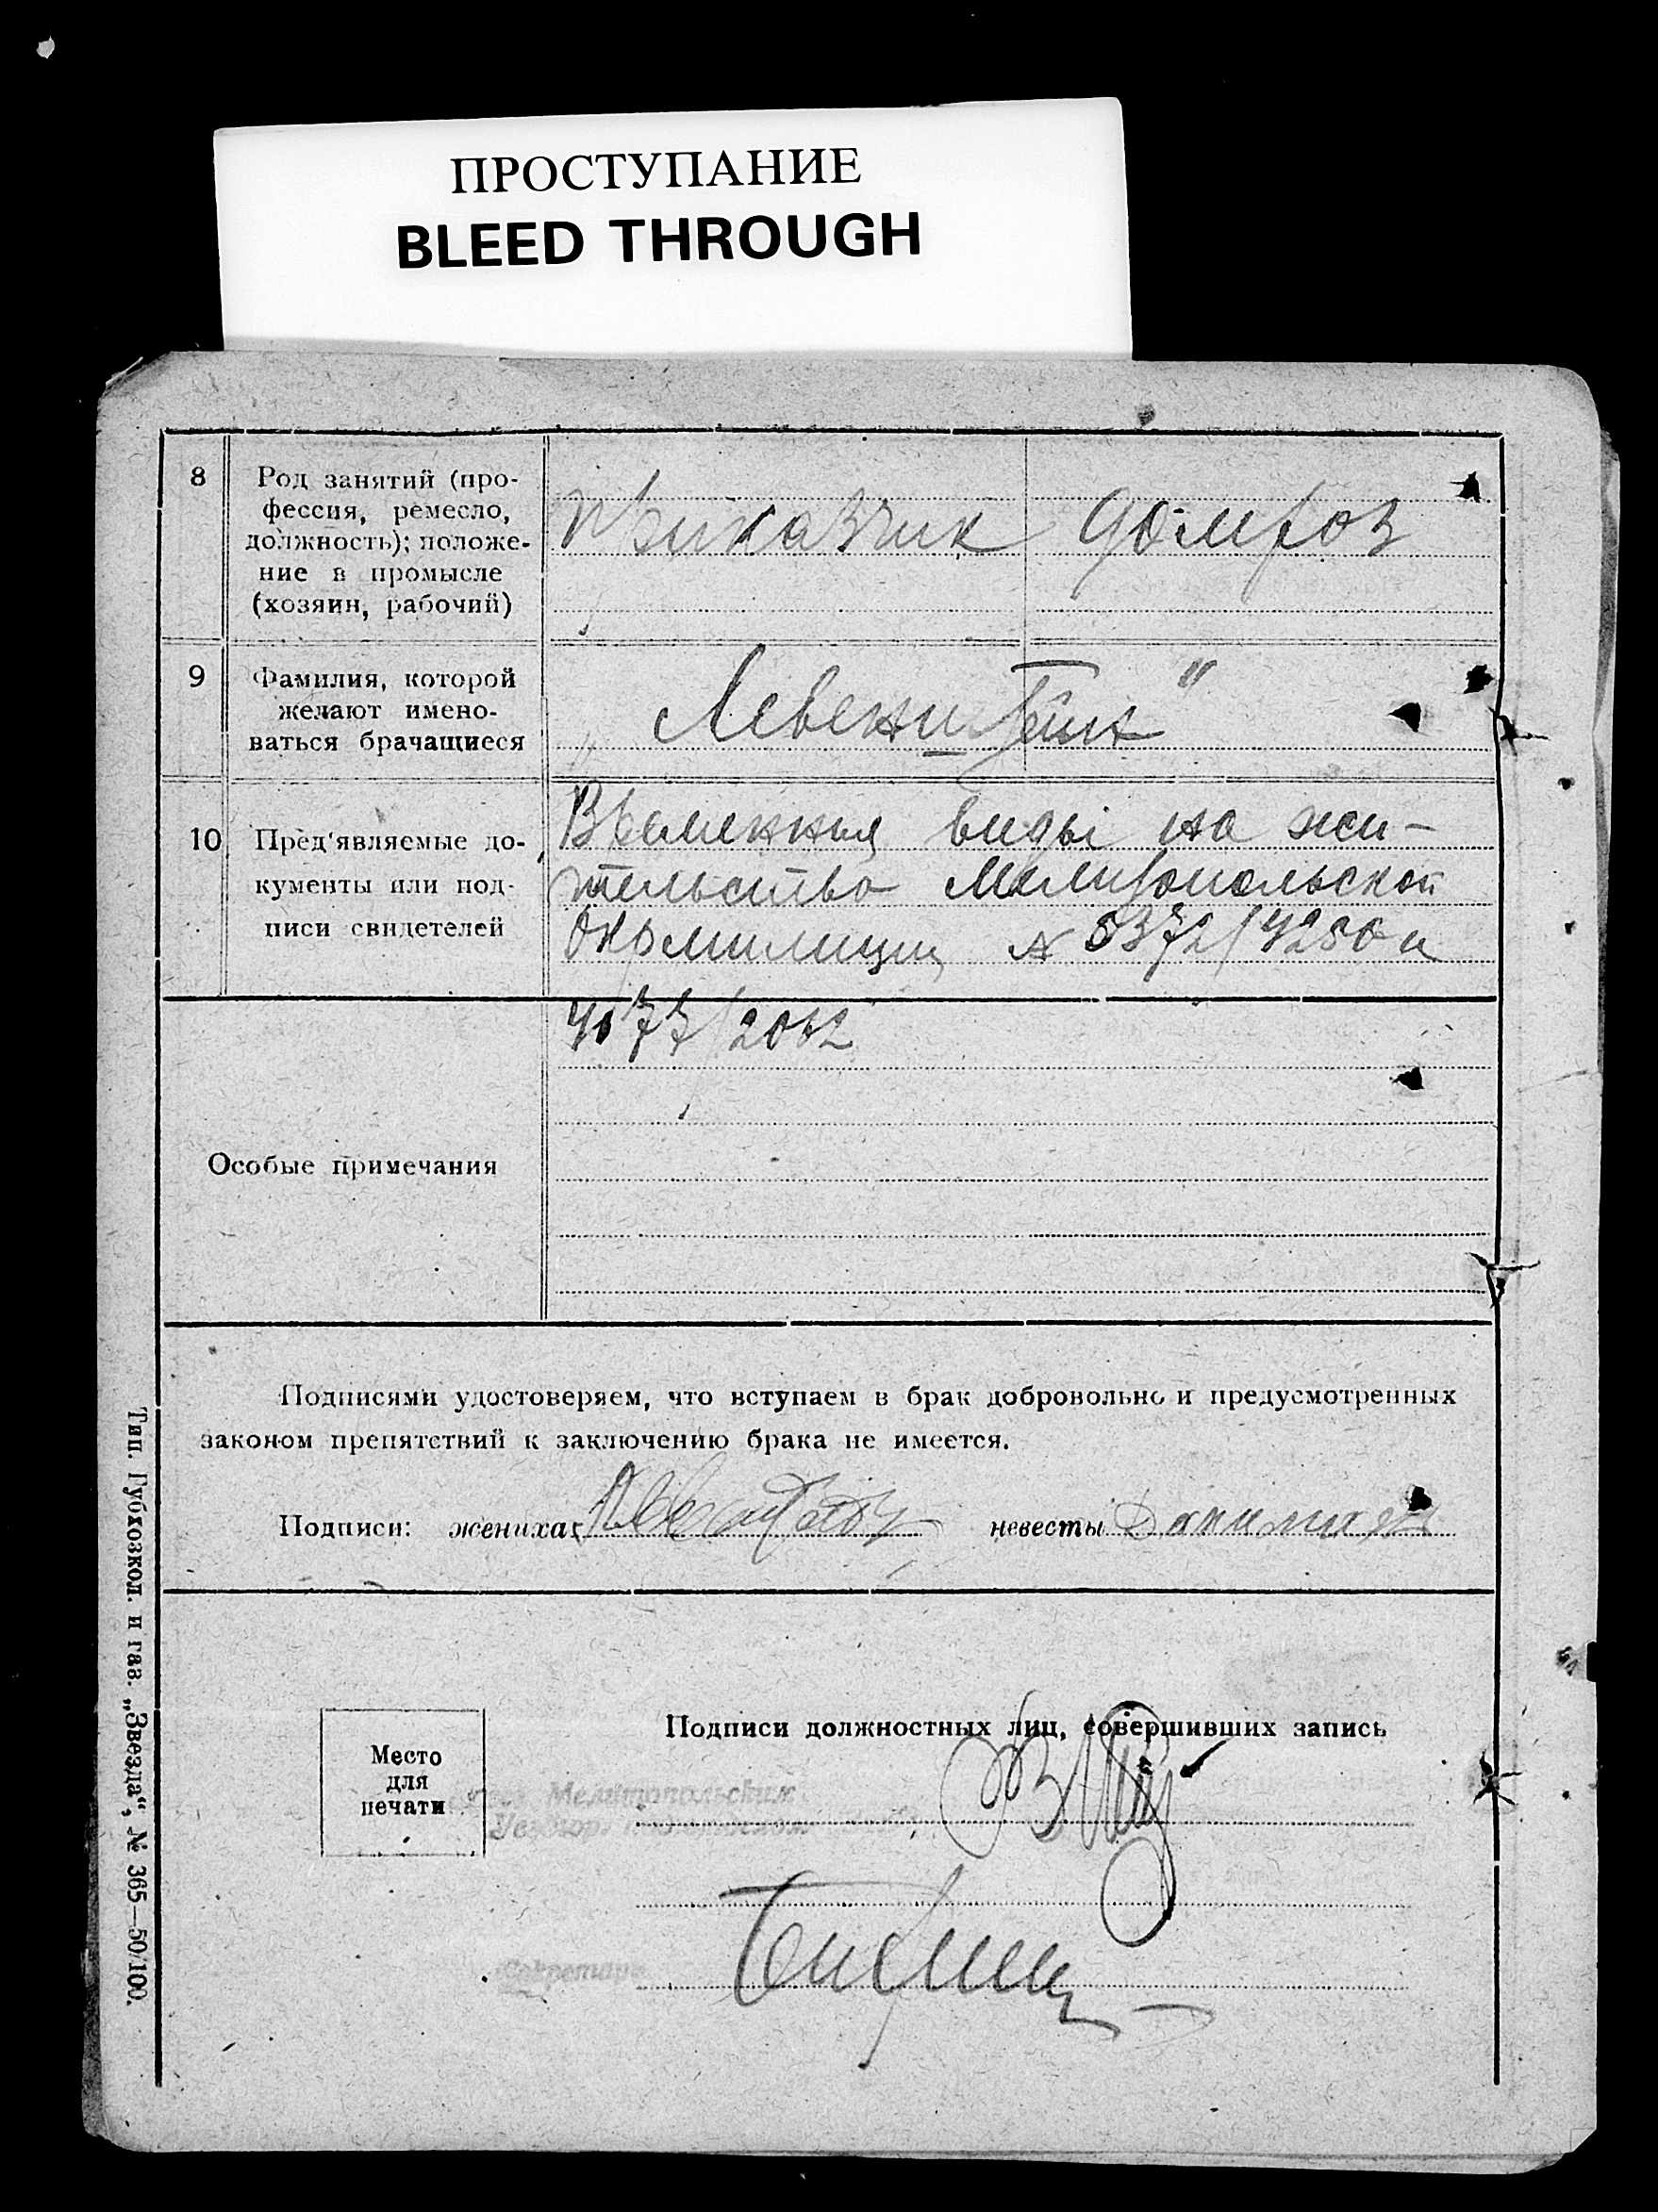 ПРОСТУПАНИЕ
BLEED THROUGH
8
Род занятий (про-
фессия, ремесло,
должность); положе-
ние в промысле
(хозяин, рабочий)
Приказчик
домхоз
9
Фамилия, которой
желают имено-
ваться брачащиеся
„Левенштейн"
10
Пред'являемые до-
кументы или под-
писи свидетелей
Временныя виды на жи-
тельство Мелитопольской
Окрмилиции № 5372/4280 и
Особые примечания
Подписями удостоверяем, что вступаем в брак добровольно и предусмотренных
законом препятствий к заключению брака не имеется.
Подписи: жениха
невесты
Подписи должностных лиц, совершивших запись
Место
для
печати
Мелитопольским
Секретарь
Тип. Губхозкол. и газ. „Звезда“, № 365—50/100.